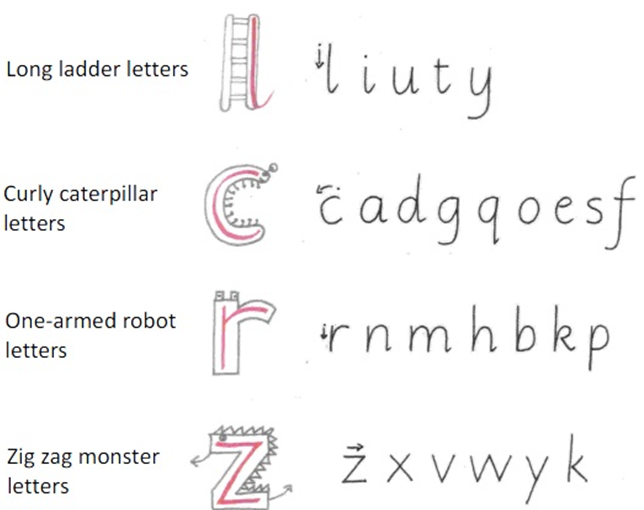 Long ladder letters l l i u t y
Curly caterpillar
letters c c a d g q o e s f
One-armed robot
letters r r n m h b k p
Zig zag monster
letters z z x v w y k